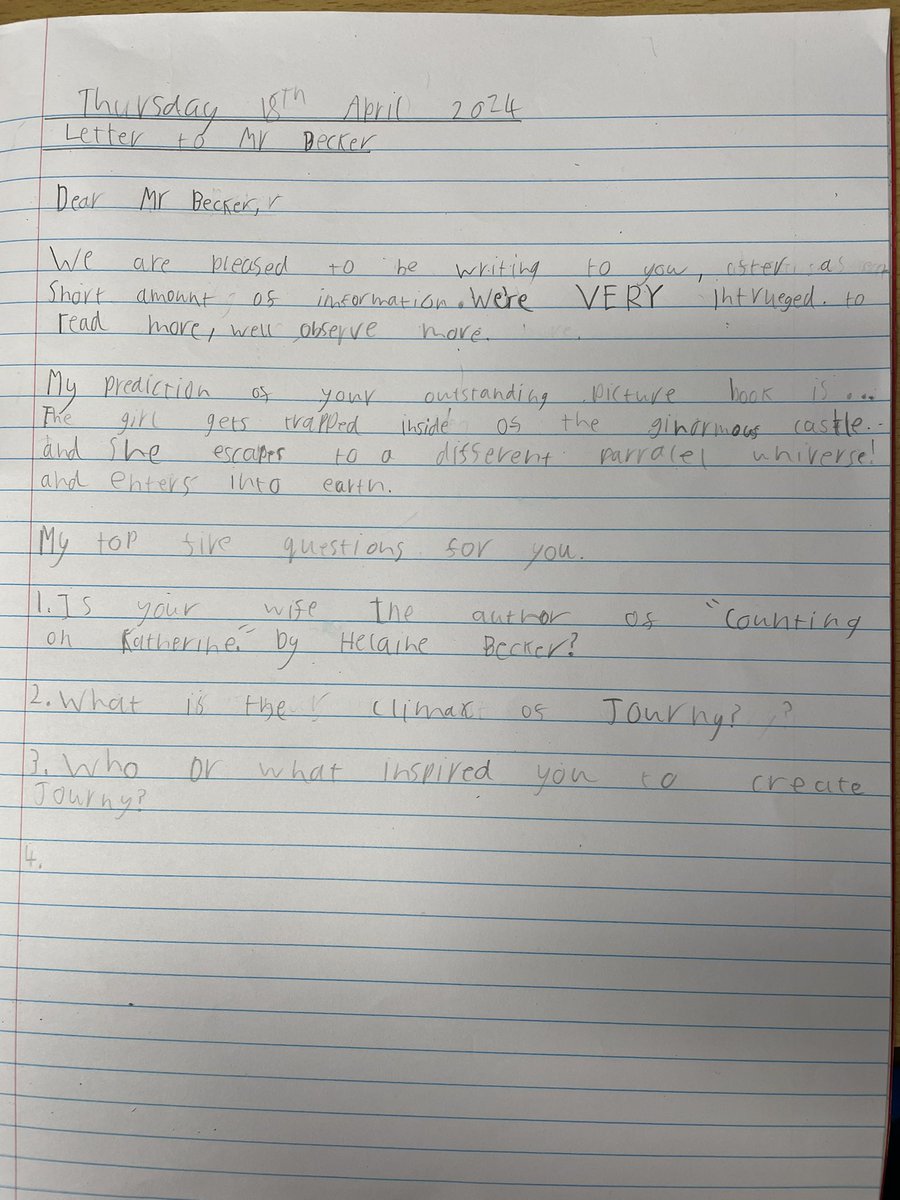 Thursday 18th April 2024
Letter to Mr Becker
Dear Mr Becker,
We are pleased to be writing to you, after a
short amount of information. We're VERY intrueged to
read more, well observe more.
My prediction of your outstanding picture book is...
The girl gets trapped inside of the ginormous castle..
and she escapes to a different parralel universe!
and enters into earth.
My top five questions for you.
1. Is your wife the author of "Counting
on Katherine" by Helaine Becker?
2. What is the climax of Journy?
3. Who or what inspired you to create
Journy?
4.